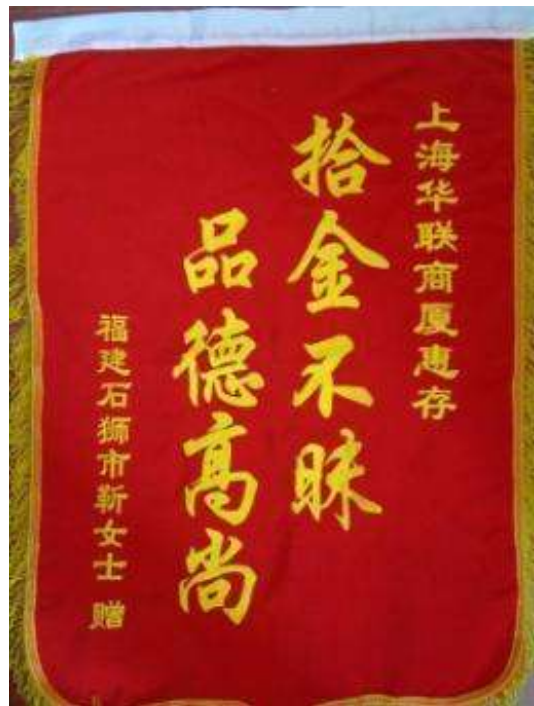 上海华联商厦惠存
拾金不昧
品德高尚
福建石狮市靳女士 赠